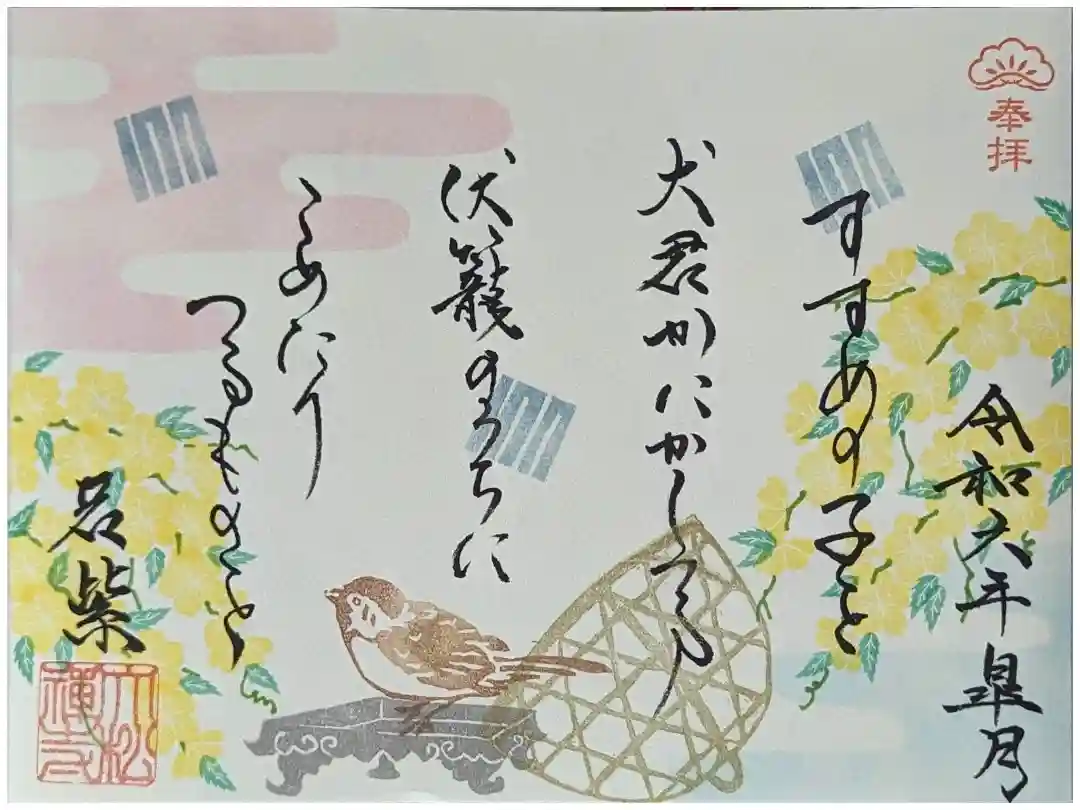 奉拝
令和六年皐月
すすめの子を
犬君かにかしつる
伏籠のうちに
こめたり
つるものを
若紫